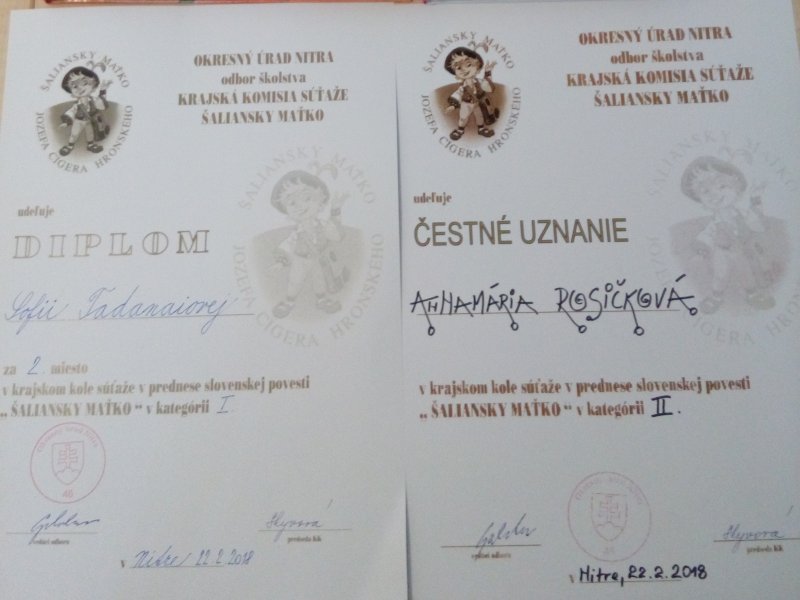 ŠALIANSKY MAŤKO
JOZEFA CÍGERA HRONSKÉHO
OKRESNÝ ÚRAD NITRA
odbor školstva
KRAJSKÁ KOMISIA SÚŤAŽE
ŠALIANSKY MAŤKO
ŠALIANSKY MAŤKO
JOZEFA CÍGERA HRONSKÉHO
udeľuje
DIPLOM
Sofii Tadanaiovej
za 2. miesto
v krajskom kole súťaže v prednese slovenskej povesti
„ ŠALIANSKY MAŤKO “ v kategórii I
46
Hyvorá
vedúci odboru
predseda KK
v Nitre 22.2.2018
ŠALIANSKY MAŤKO
JOZEFA CÍGERA HRONSKÉHO
OKRESNÝ ÚRAD NITRA
odbor školstva
KRAJSKÁ KOMISIA SÚŤAŽE
ŠALIANSKY MAŤKO
ŠALIANSKY MAŤKO
JOZEFA CÍGERA HRONSKÉHO
udeľuje
ČESTNÉ UZNANIE
ANNAMÁRIA ROSIČKOVÁ
v krajskom kole súťaže v prednese slovenskej povesti
„ ŠALIANSKY MAŤKO “ v kategórii II.
46
Hyvorá
vedúci odboru
predseda KK
v Nitra, 22.2.2018